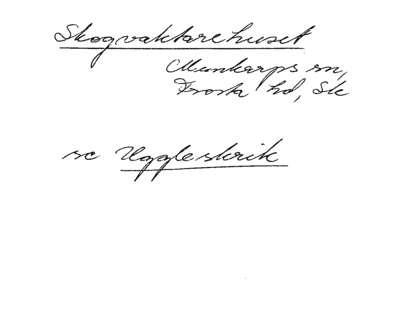 Skogvaktarehuset
Munkarps sn,
Frosta hd, Sk
se Uggleskrik